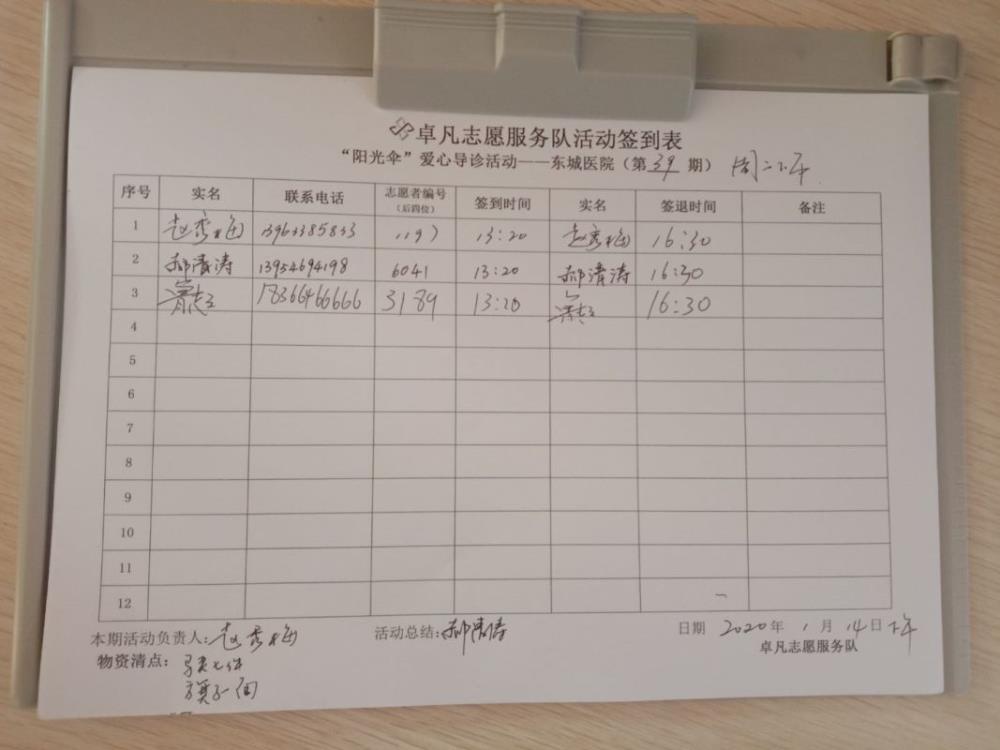 卓凡志愿服务队活动签到表
“阳光伞”爱心导诊活动——东城医院（第39期） 周二下午
序号 实名 联系电话 志愿者编号（后四位） 签到时间 实名 签退时间 备注
1 赵秀梅 13963385833 1197 13:20 赵秀梅 16:30
2 郝清涛 13954694198 6041 13:20 郝清涛 16:30
3 18366466666 3189 13:20 16:30
4
5
6
7
8
9
10
11
12
本期活动负责人：赵秀梅 活动总结：郝清涛 日期 2020年1月14日下午
卓凡志愿服务队
物资清点：